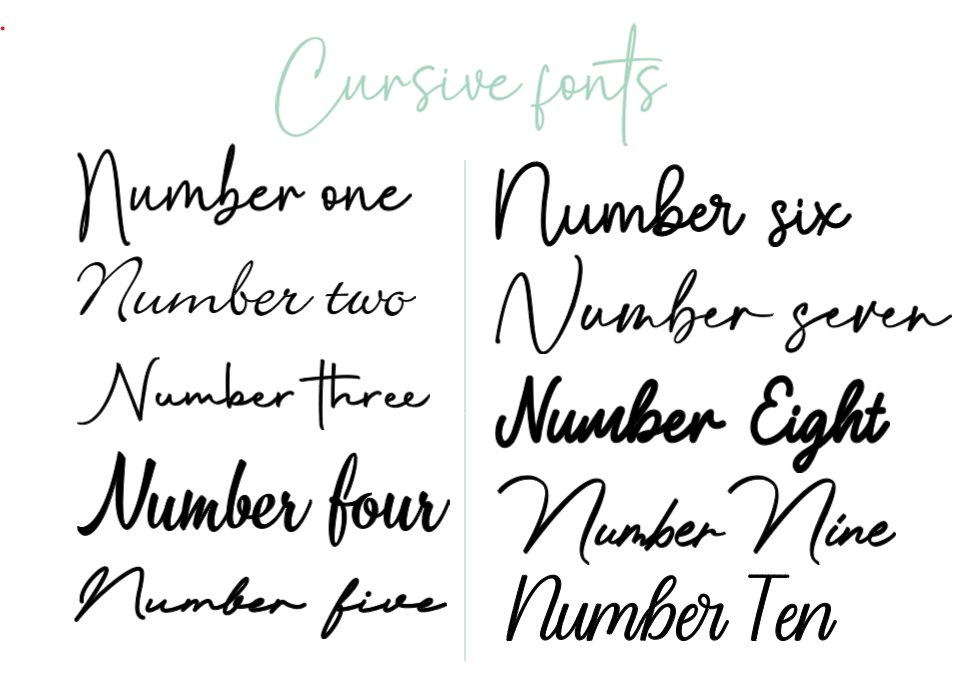 Cursive fonts
Number one
Number two
Number three
Number four
Number five
Number six
Number seven
Number Eight
Number Nine
Number Ten